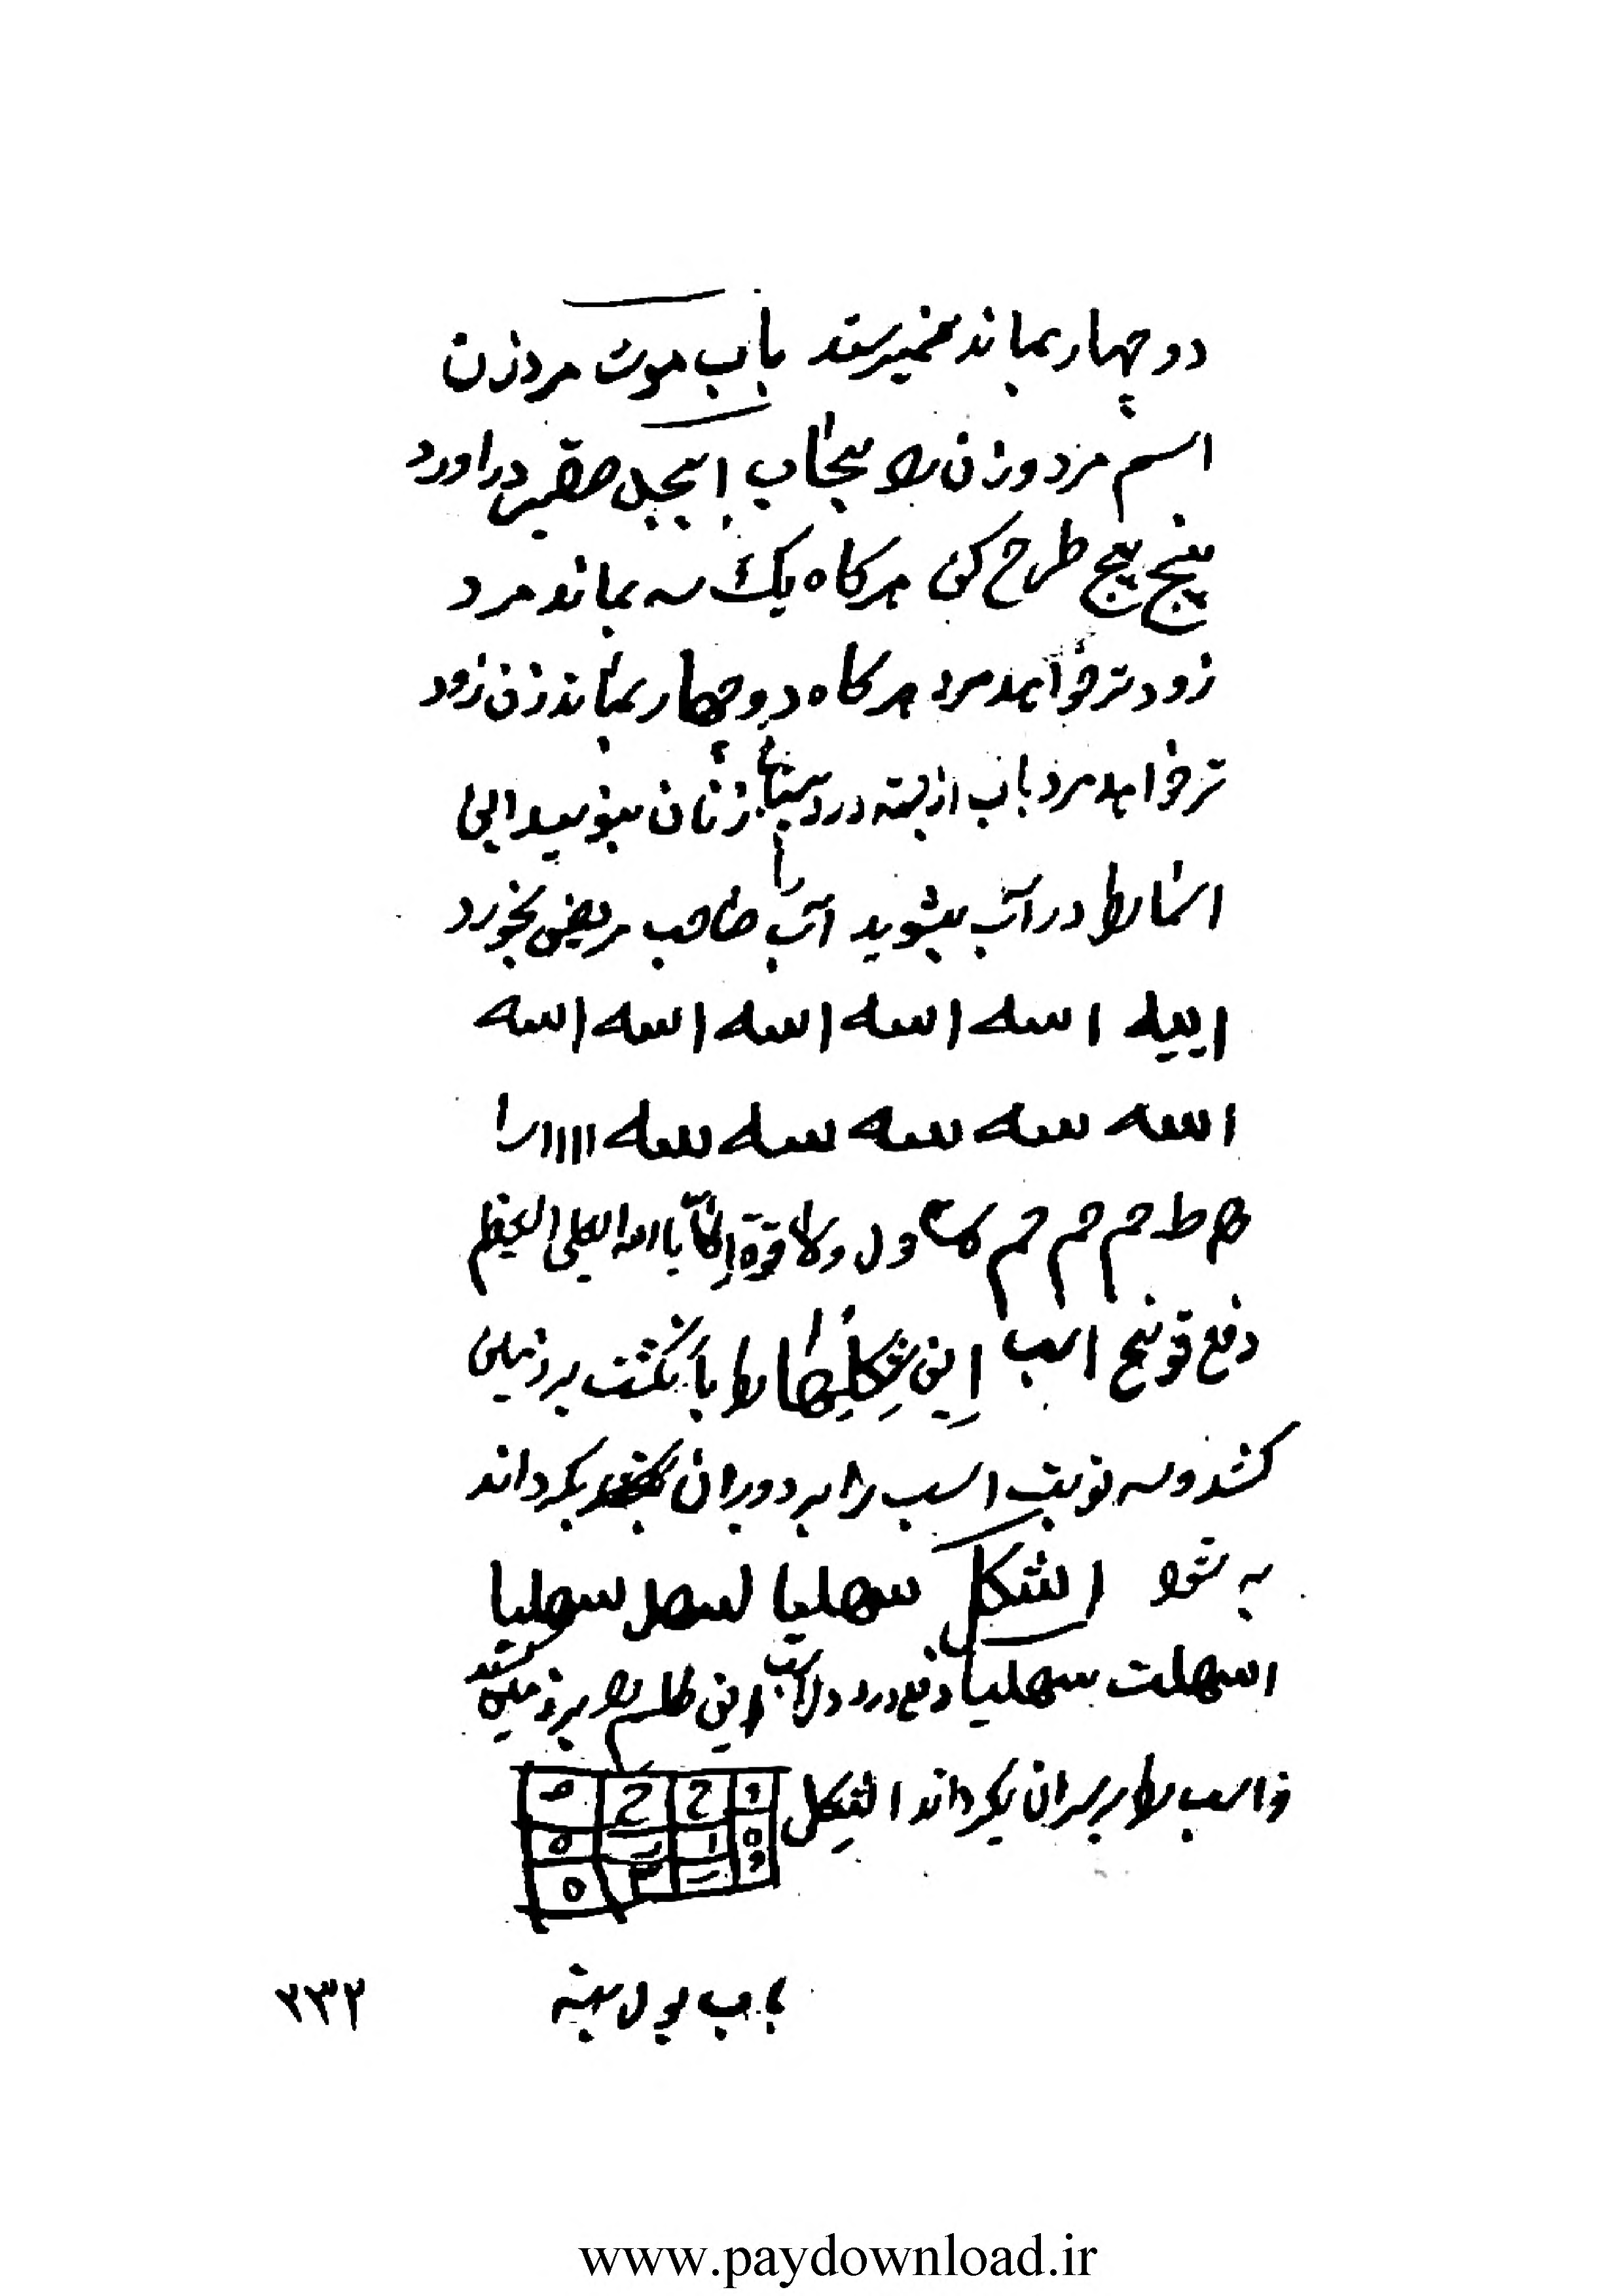 دو چهار بماند نمیرسند باب موت مرد زن
اسم مرد و زن را بحساب ابجد در اورد
پنج پنج طرح کن هرکاه یک سه بماند مرد
زود تر خواهد مرد هرکاه دو چهار بماند زن زود
تر خواهد مرد باب از درد زنان بنویسد این
اسما را در آب بشوید آب صاحب مریض بخورد
اسه اسه اسه اسه اسه
اسه سه سه سه سه اااا
ط ول ولا قوة الا باالله العلی العظیم
دفع قولنج اسب این شکلها را با نکشت بر زمین
کشد و سه نوبت اسب را بر دوران بکرداند
به شود اشکل سهلیا لسهل سهلیا
اسهلت سهلیا دفع درد دل اسب این طلسم را بر زمین کشد
و اسب را بر سر ان بکرداند اشکل
و ح ح
ه ا
و ه
باب بول بسته
۲۳۲
www.paydownload.ir